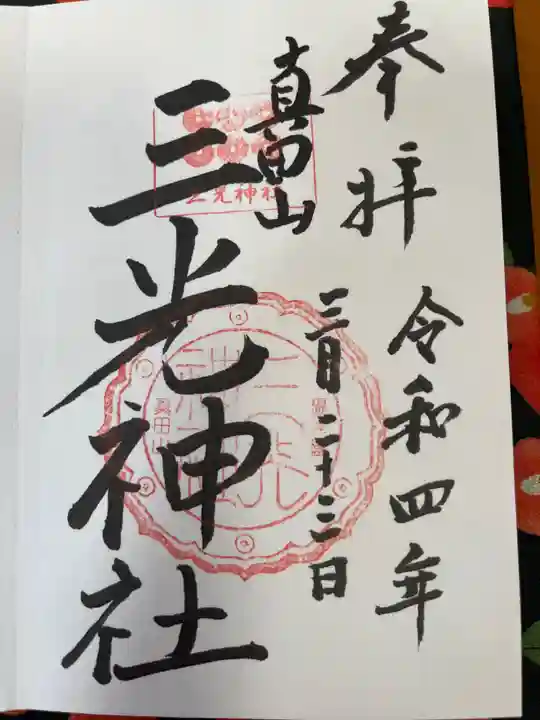 奉拝
令和四年
三月二十三日
真田山
三光神社
三光神社
真田山